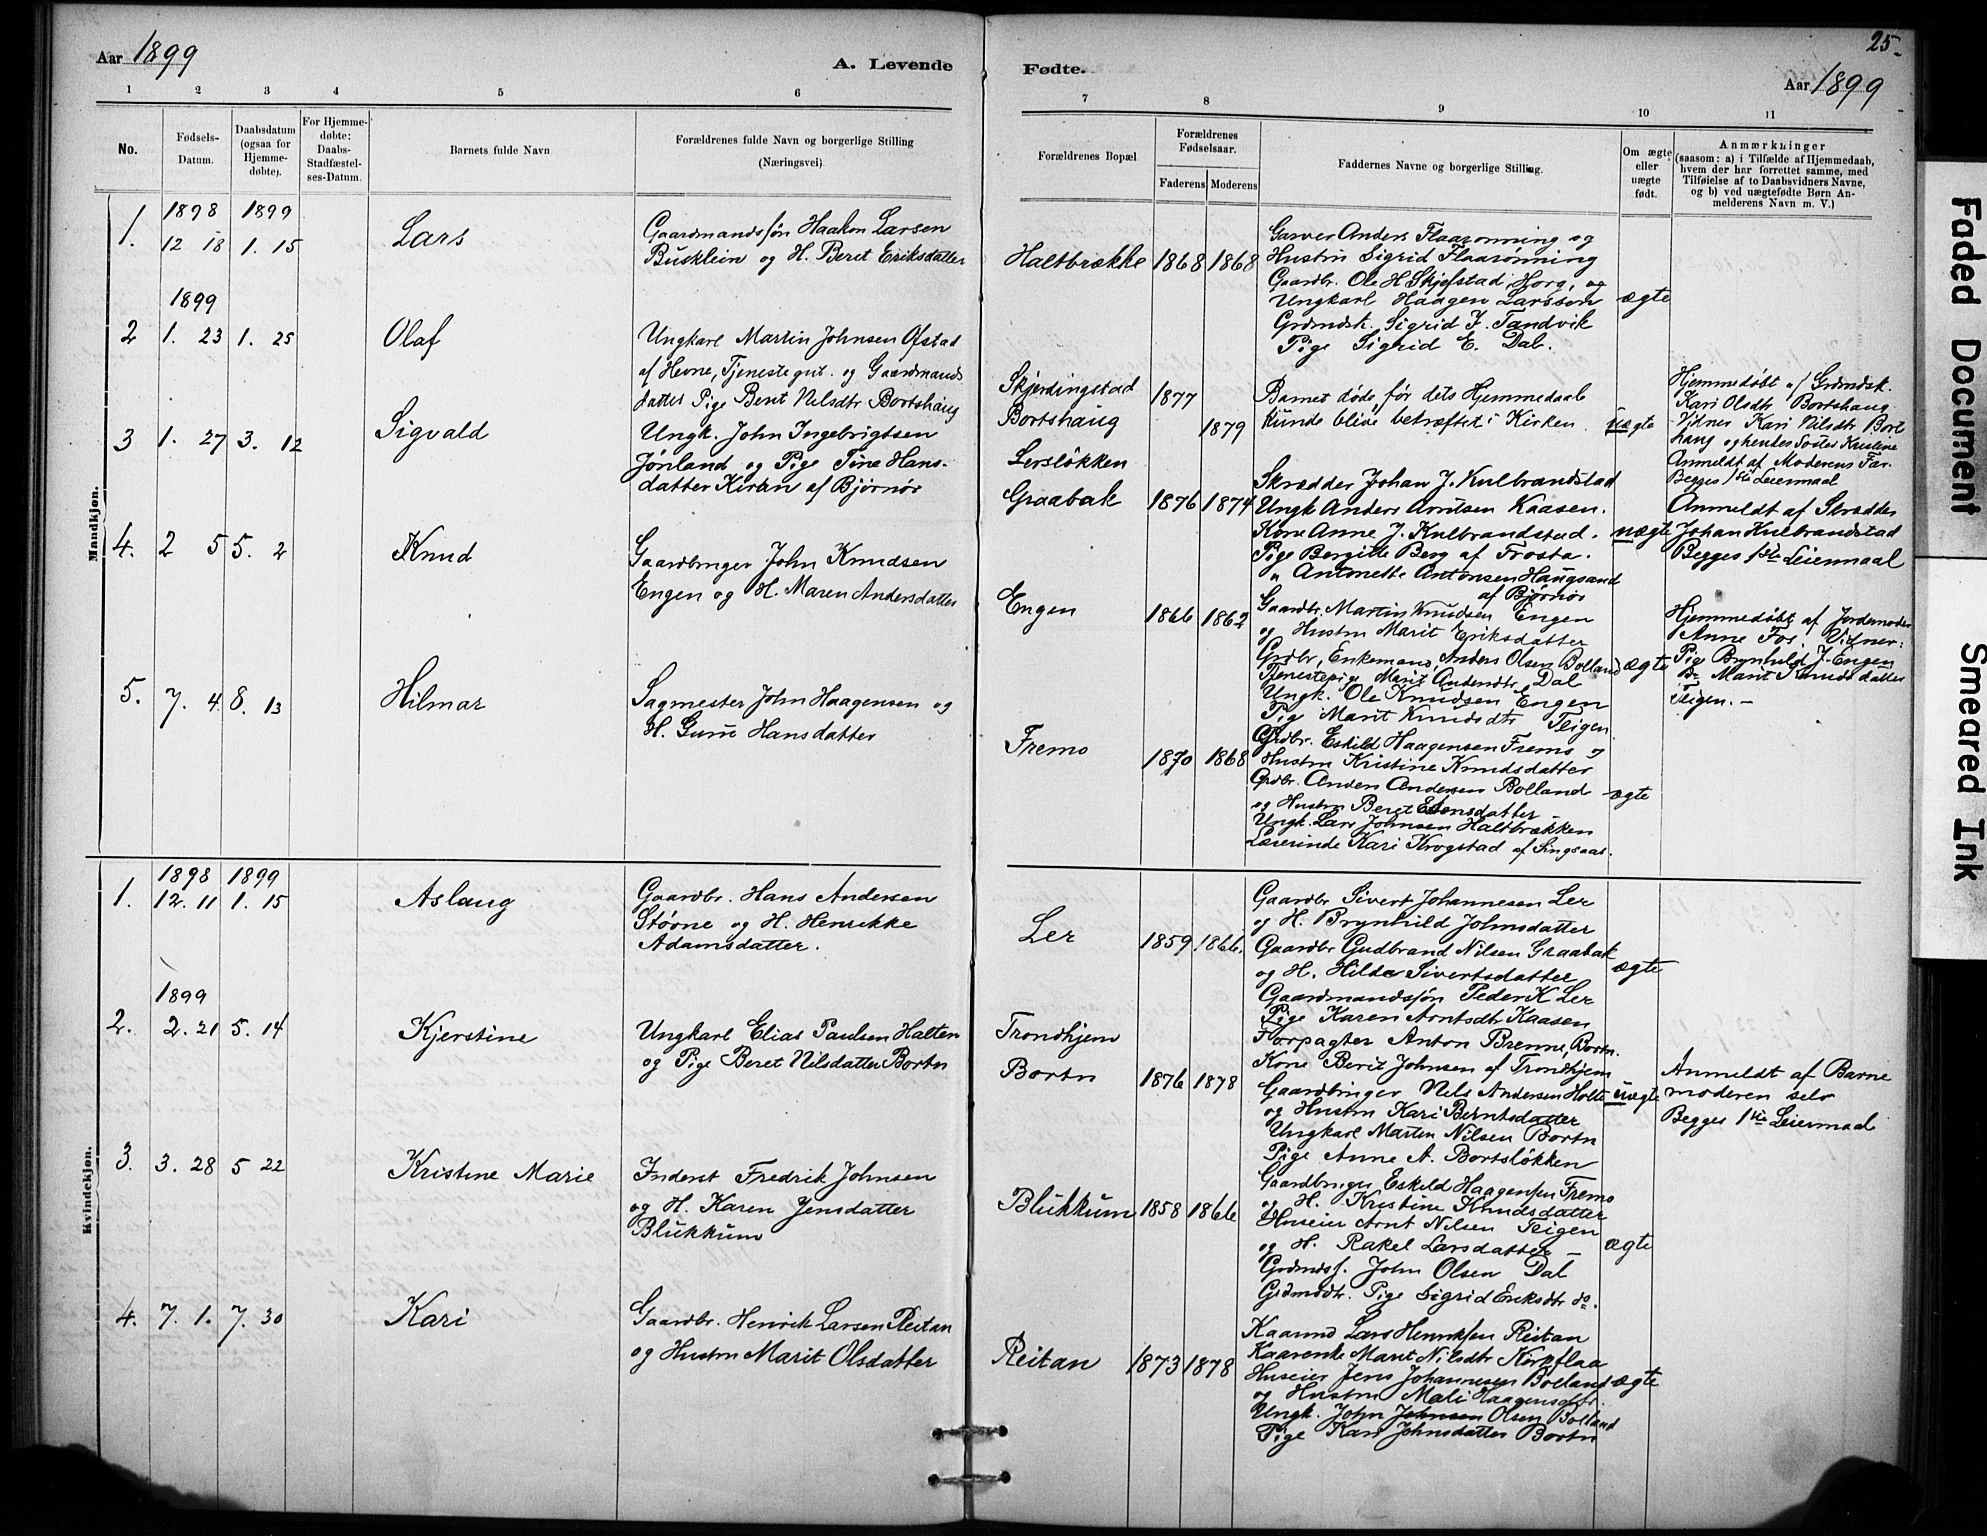 Aar 1899
A. Levende
1 2 3 4 5 6
No.
Fødsels-
Datum.
Daabsdatum
(ogsaa for
Hjemme-
døbte).
For Hjemme-
døbte:
Daabs-
Stadfæstel-
ses-Datum.
Barnets fulde Navn
Forældrenes fulde Navn og borgerlige Stilling
(Næringsvei)
Mandkjøn.
1898 1899
1. 12 18 1. 15 Lars
Gaardmandssøn Haakon Larsen
Busklein og H. Beret Eriksdatter
1899
2 1. 23 1. 25 Olaf
Ungkarl Martin Johnsen Ofstad
af Hevne, Tjenestegut. og Gaardmands
datter Pige Berit Nilsdtr Bortshaug
3 1. 27 3. 12 Sigvald
Ungk. John Ingebrigtsen
Jøriland og Pige Tine Hans-
datter Kiran af Bjørnør
4. 2 5 5. 2 Knud
Gaardbruger John Knudsen
Engen og H. Maren Andersdatter
5. 7. 4 8. 13 Hilmar
Sagmester John Haagensen og
H. Guru Hansdatter
Kvindekjøn.
1898 1899
1. 12. 11 1. 15 Aslaug
Gaardbr. Hans Andersen
Støvne og H. Henrikke
Adamsdatter.
1899
2. 2. 21 5. 14 Kjerstine
Ungkarl Elias Paulsen Halten
og Pige Beret Nilsdatter Bortn
3. 3. 28 5 22 Kristine Marie
Inderst Fredrik Johnsen
og H. Karen Jensdatter
Blukkum
4. 7. 1. 7. 30 Kari
Gaardbr. Henrik Larsen Reitan
og Hustru Marit Olsdatter
25.
Fødte.
Aar 1899
7 8 9 10 11
Forældrenes Bopæl
Forældrenes
Fødselsaar.
Faderens Moderens
Faddernes Navne og borgerlige Stilling.
Om ægte
eller
uægte
født.
Anmærkninger
(saasom: a) i Tilfælde af Hjemmedaab,
hvem der har forrettet samme, med
Tilføielse af to Daabsvidners Navne,
og b) ved uægtefødte Børn An-
melderens Navn m. V.)
Haltbrække 1868 1868 ægte
Garver Anders Flaarønning og
Hustru Sigrid Flaarønning
Gaardbr. Ole H Skjefstad, Horg, og
Ungkarl Haagen Larssen
Grdmdsk. Sigrid J. Tandvik
Pige Sigrid E. Dal.
Skjerdingstad 1877
Bortshaug 1879 uægte
Barnet døde før dets Hjemmedaab
kunde blive betræftet i Kirken.
Hjemmedøbt af Grdmdsk.
Kari Olsdtr Bortshaug
Vidner Kari Nilsdtr Bort
haug og hendes Søster Kristine
Anmeldt af Moderens Far.
Begges 1ste Leiermaal
Lersløkken
Graabak 1876 1874 uægte
Skrædder Johan J. Kulbrandstad
Ungk Anders Arntsen Kaasen.
Kone Anne J. Kulbrandstad.
Pige Bergitte Berg af Frosta.
" Antonette Antonsen Haugsand
af Bjørnør
Anmeldt af Skrædder
Johan Kulbrandstad
Begges 1ste Leiermaal
Engen 1866 1862 ægte
Gaardbr. Martin Knudsen Engen
og Hustru Marit Eriksdatter
Grdbr, Enkemand, Anders Olsen Bolland
Tjenestepige Marit Andersdtr Dal
Ungk. Ole Knudsen Engen
Pige Marit Knudsdtr Teigen
Hjemmedøbt af Jordemoder
Anne Fos. Vidner:
Pige Brynhild J. Engen
Do Marit Knudsdatter
Teigen. -
Fremo 1870 1868 ægte
Grdbr. Eskild Haagensen Fremo og
Hustru Kristine Knudsdatter
Grdbr. Anders Andersen Bolland
og Hustru Beret Estensdatter
Ungk. Lars Johnsen Haltbrækken
Lærerinde Kari Krogstad af Singsaas.
Ler 1859 1866. ægte
Gaardbr Sivert Johannesen Ler
og H. Brynhild Johnsdatter
Gaardbr Gudbrand Nilsen Graabak
og H. Hilda Sivertsdatter
Gaardmandssøn Peder K Ler
Pige Karen Arntsdtr Kaasen
Trondhjem
Bortn 1876 1878 uægte
Forpagter Anton Brenne, Bortn.
Kone Berit Johnsen af Trondhjem
Gaardbruger Nels Andersen Holte
og Hustru Kari Berntsdatter
Ungkarl Martin Nilsen Bortn
Pige Anne A. Bortsløkken
Anmeldt af Barne
moderen selv
Begges 1ste Leiermaal
Blukkum 1858 1866 ægte
Gaardbruger Eskild Haagensen Fremo
og H. Kristine Knudsdatter
Huseier Arnt Nilsen Teigen
og H. Rakel Larsdatter -
Grdmds. John Olsen Dal
Grdmdtr. Pige Sigrid Eriksdtr do.
Reitan 1873 1878 ægte
Kaarmd Lars Henriksen Reitan
Kaarenke Marit Nilsdtr Kirkflaa
Huseier Jens Johannesen Bolland
og Hustru Mali Haagensdtr
Ungk. John Johnsen Olsen Bolland
Pige Kari Johnsdatter Bortn
Faded Document
Smeared Ink